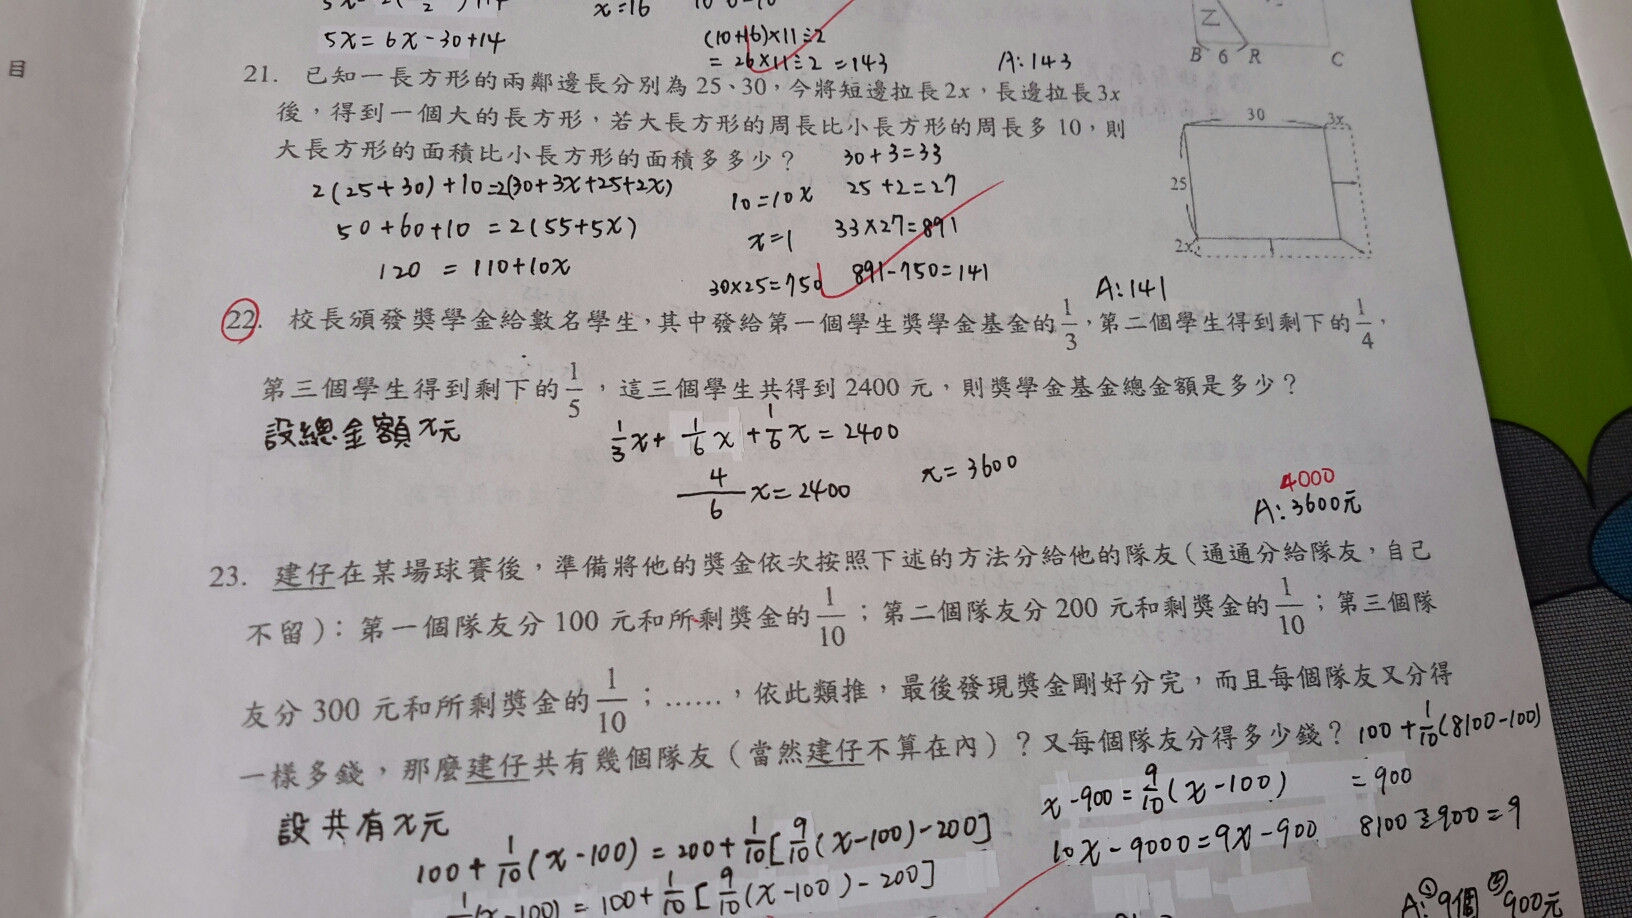 x=16
5x=6x-30+14
(10+16)×11÷2
=26×11÷2=143
A:143
乙
B 6 R C
目
21. 已知一長方形的兩鄰邊長分別為25、30,今將短邊拉長2x,長邊拉長3x
後,得到一個大的長方形,若大長方形的周長比小長方形的周長多10,則
大長方形的面積比小長方形的面積多多少?
30
3x
25
2x
2(25+30)+10=2(30+3x+25+2x)
50+60+10=2(55+5x)
120=110+10x
10=10x
x=1
30+3=33
25+2=27
33×27=891
30×25=750
891-750=141
A:141
22. 校長頒發獎學金給數名學生,其中發給第一個學生獎學金基金的1/3,第二個學生得到剩下的1/4,
第三個學生得到剩下的1/5,這三個學生共得到2400元,則獎學金基金總金額是多少?
設總金額x元
1/3x+1/6x+1/6x=2400
4/6x=2400
x=3600
4000
A:3600元
23. 建仔在某場球賽後,準備將他的獎金依次按照下述的方法分給他的隊友(通通分給隊友,自己
不留):第一個隊友分100元和所剩獎金的1/10;第二個隊友分200元和剩獎金的1/10;第三個隊
友分300元和所剩獎金的1/10;……,依此類推,最後發現獎金剛好分完,而且每個隊友又分得
一樣多錢,那麼建仔共有幾個隊友(當然建仔不算在內)?又每個隊友分得多少錢?
100+1/10(8100-100)
=900
8100÷900=9
設共有x元
100+1/10(x-100)=200+1/10[9/10(x-100)-200]
1/10(x-100)=100+1/10[9/10(x-100)-200]
x-900=9/10(x-100)
10x-9000=9x-900
A:①9個②900元